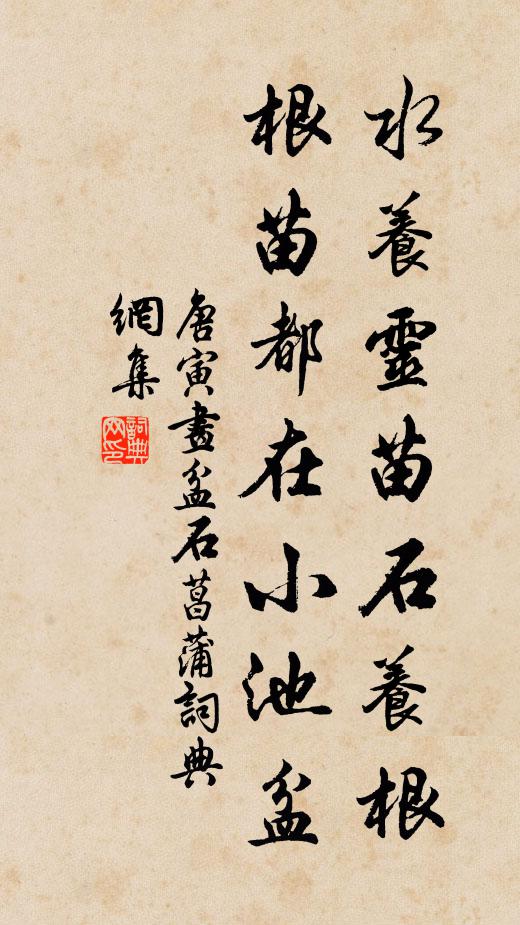 水養靈苗石養根
根苗都在小池盆
唐寅畫盆石菖蒲詞典
網集
詞典網印